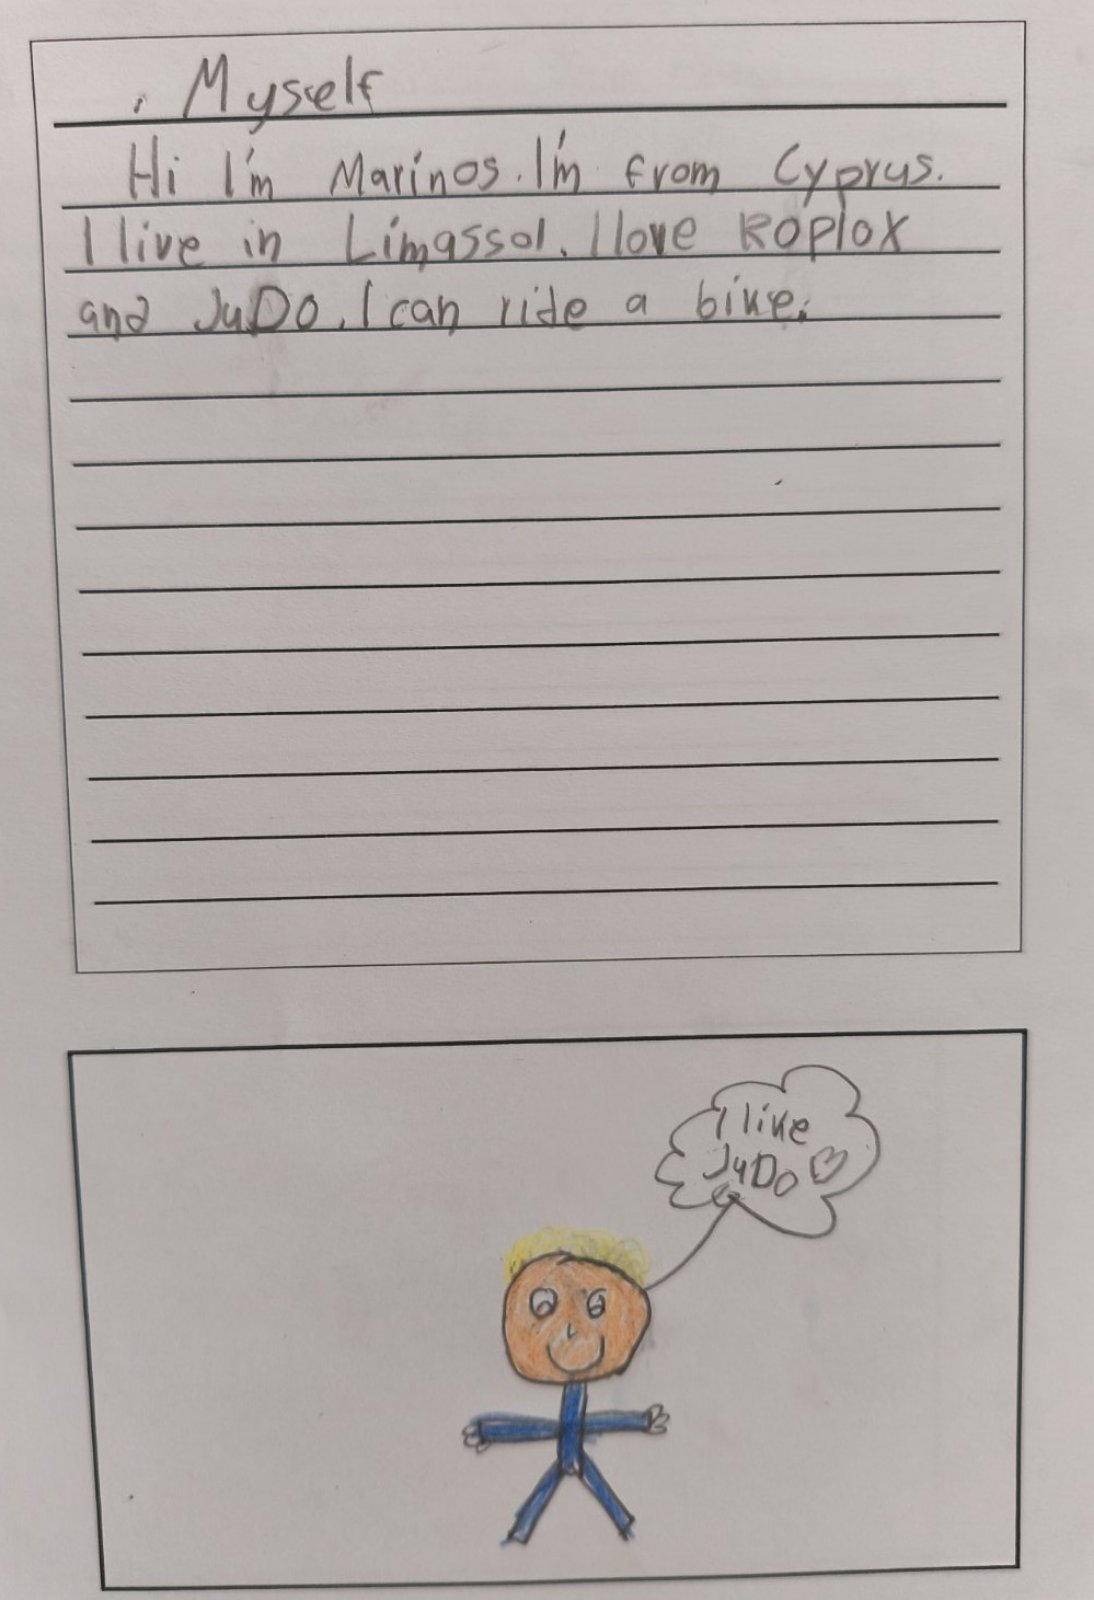 Myself
Hi I'm Marinos. I'm from Cyprus.
I live in Limassol. I love Roplox
and JuDo. I can ride a bike.
I like
JuDo